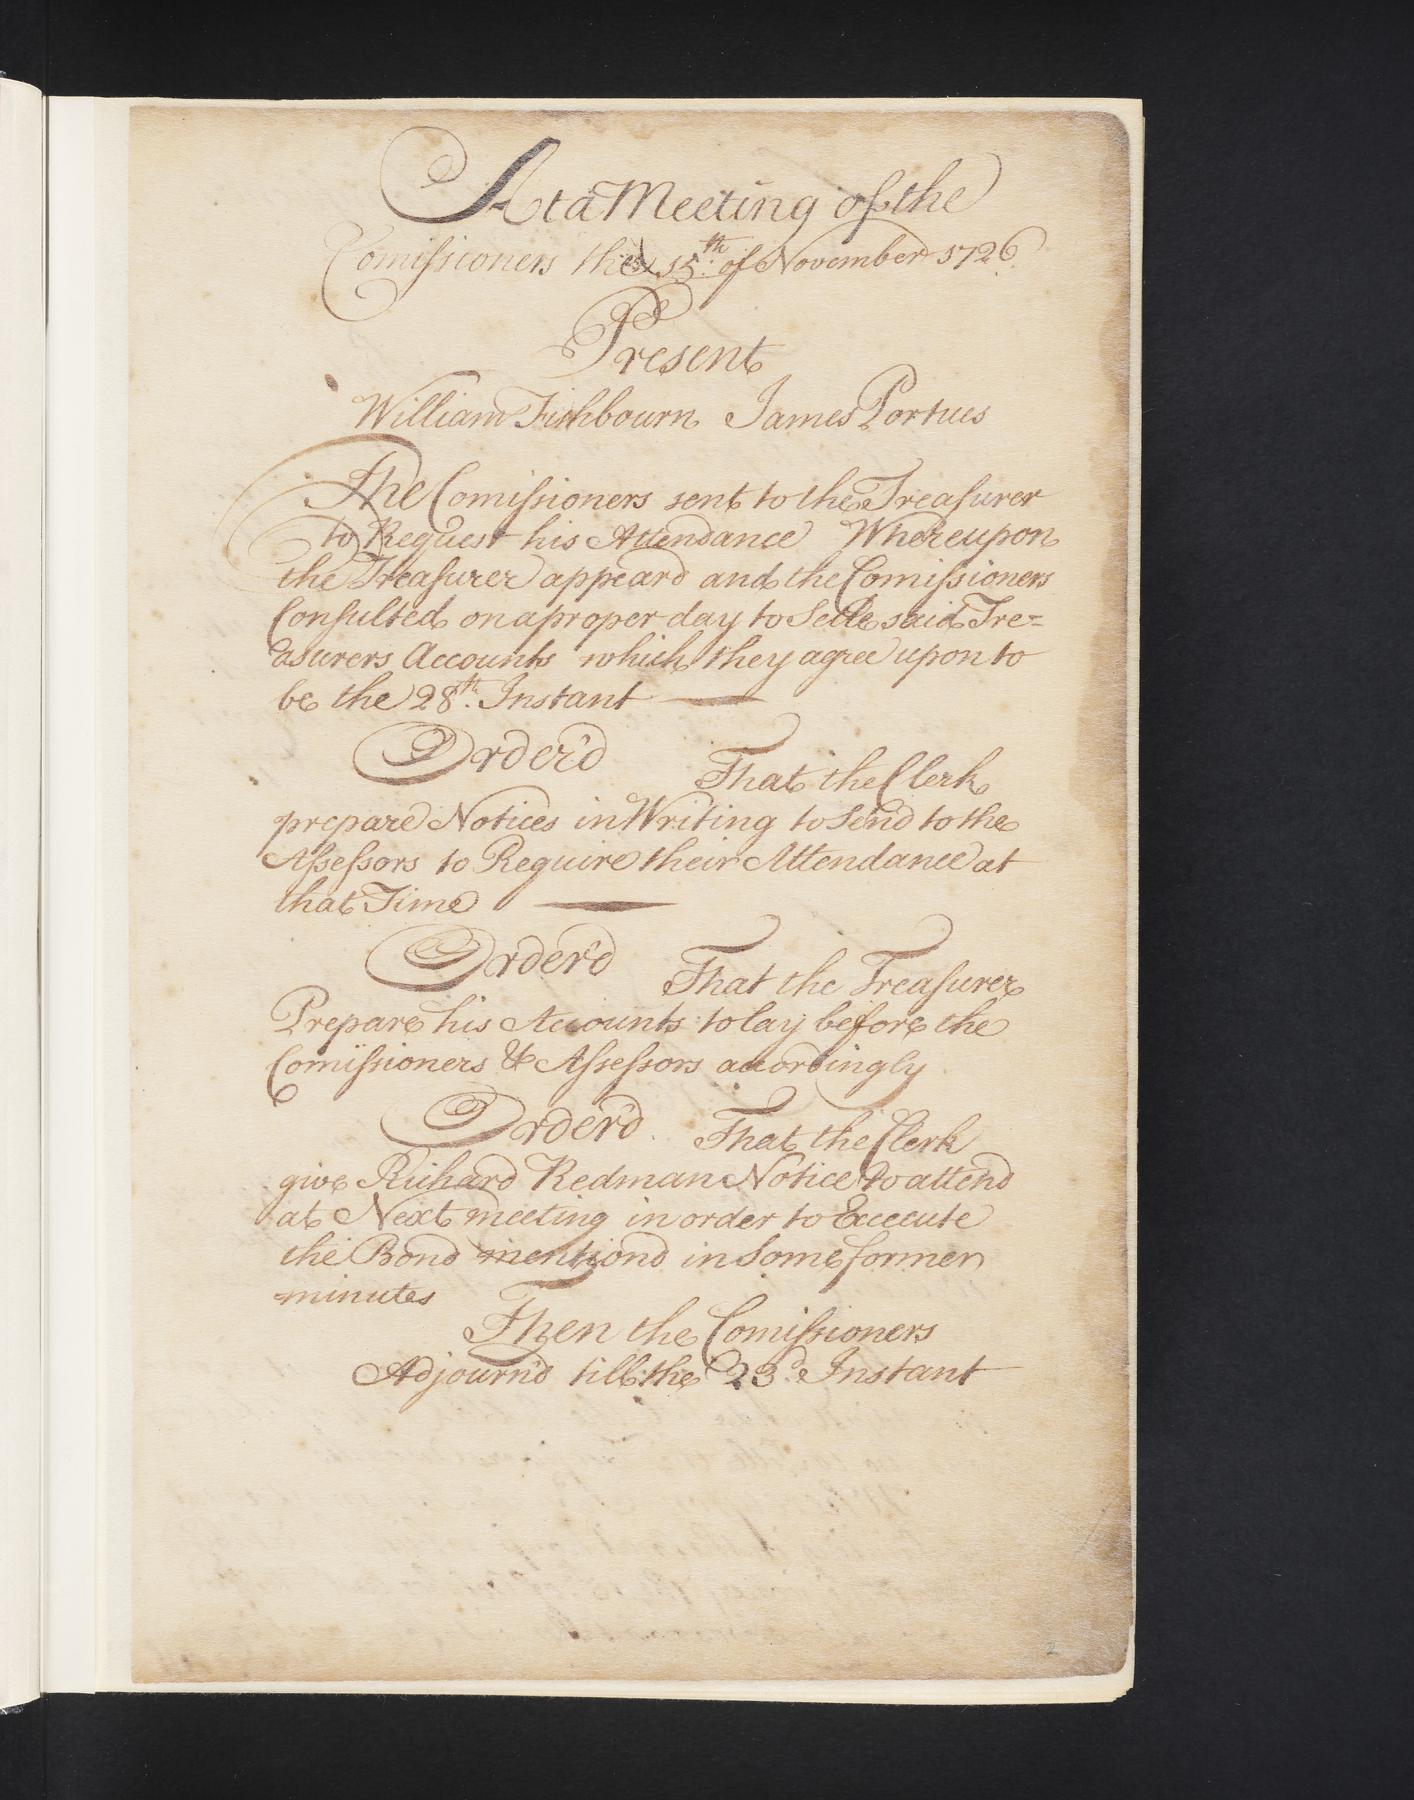 At a Meeting of the
Comissioners the 15th of November 1726
Present
William Fishbourn James Portues
The Comissioners sent to the Treasurer
to Request his Attendance Whereupon
the Treasurer appeard and the Comissioners
Consulted on a proper day to Settle said Tre=
asurers Accounts which they agree upon to
be the 28th. Instant
Order'd That the Clerk
prepare Notices in Writing to Send to the
Assessors to Require their Attendance at
that Time
Order'd That the Treasurer
Prepare his Accounts to lay before the
Comissioners & Assessors accordingly
Order'd That the Clerk
give Richard Redman Notice to attend
at Next meeting in order to Excecute
the Bond mentiond in Some former
minutes
Then the Comissioners
Adjourn'd till the 23d. Instant
2